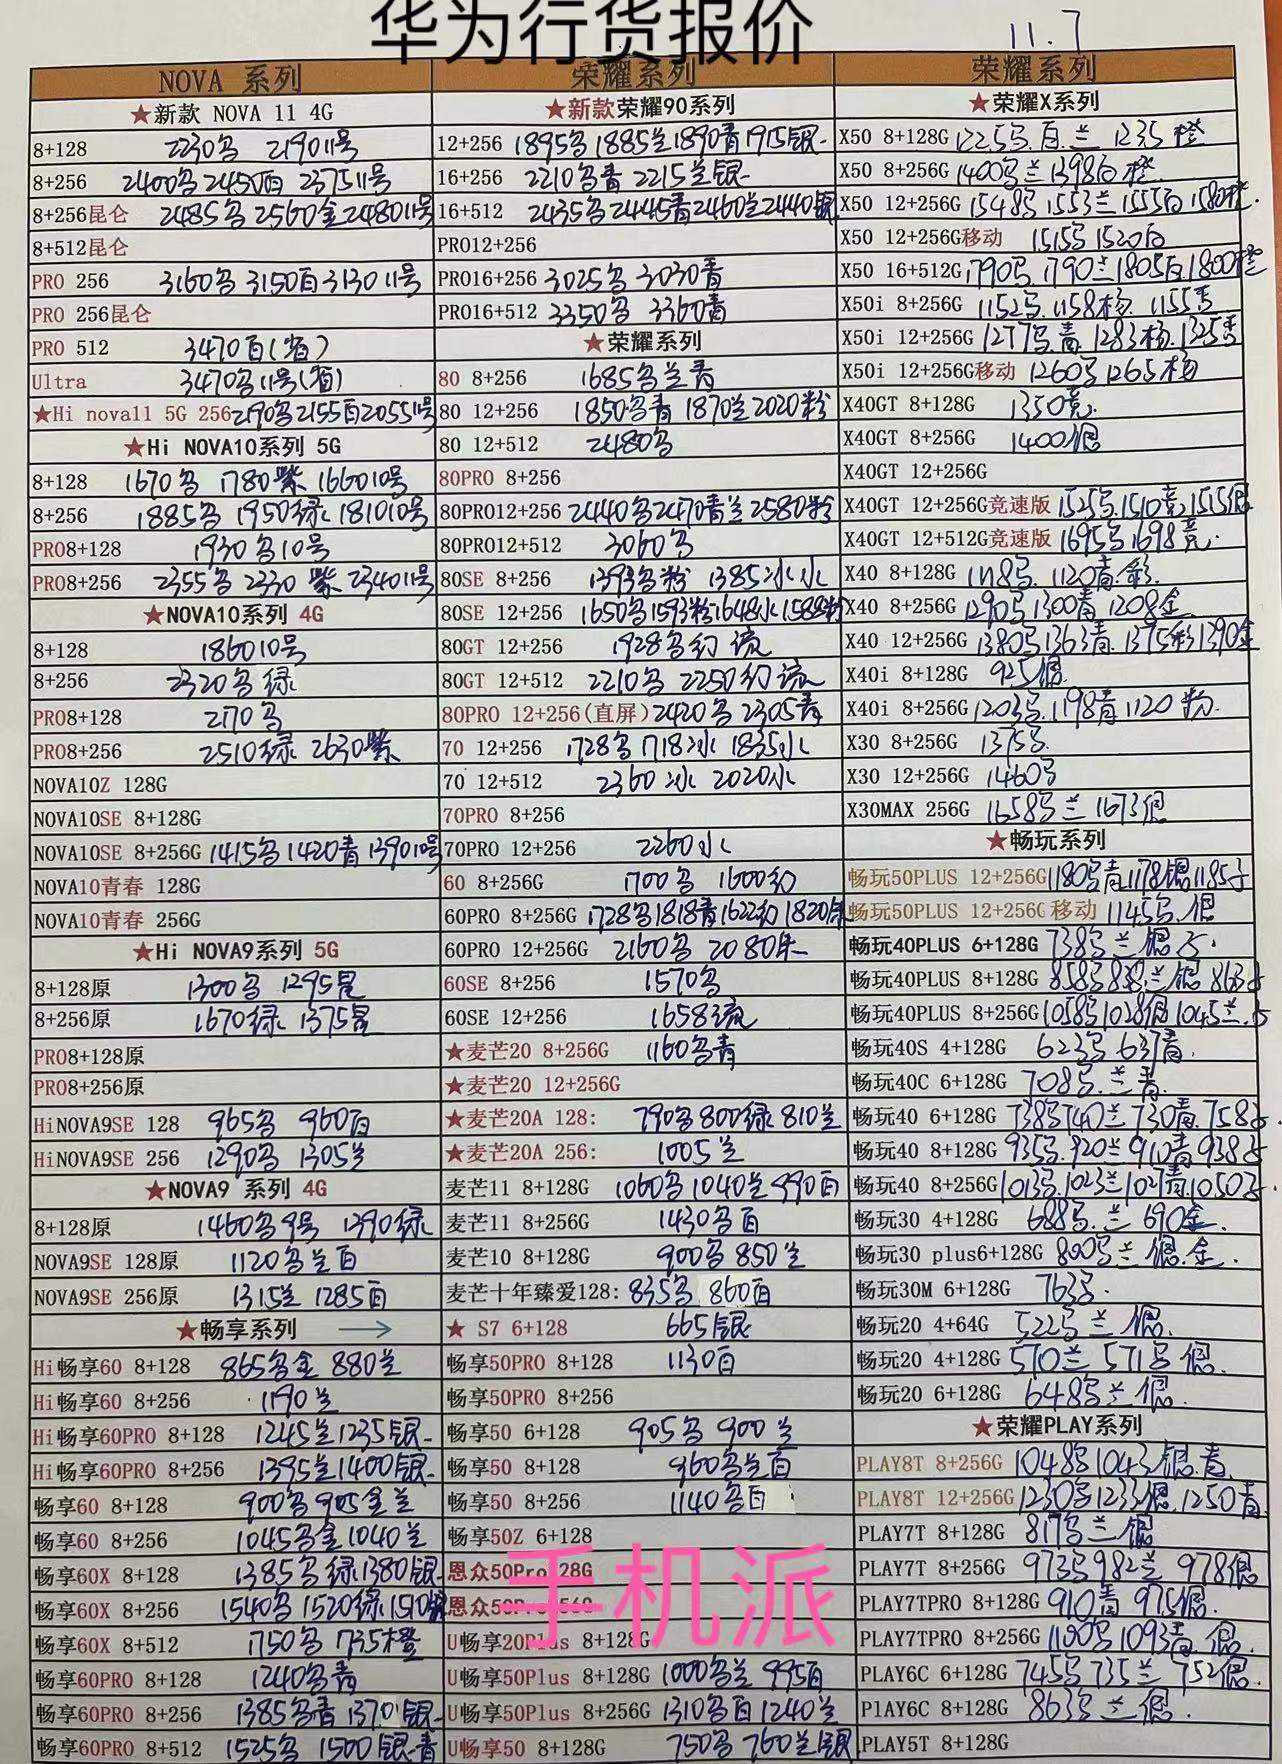 华为行货报价
11.7
NOVA 系列
★新款 NOVA 11 4G
8+128 2230名 219011号
8+256 2400名2450白 237511号
8+256昆仑 2485名2560金248011号
8+512昆仑
PRO 256 3160名3150白313011号
PRO 256昆仑
PRO 512 3470白(省)
Ultra 3470名11号(省)
★Hi nova11 5G 256 2190名2155白205511号
★Hi NOVA10系列 5G
8+128 1670名 1780紫 166010号
8+256 1885名 1950绿 181010号
PRO8+128 1930名10号
PRO8+256 2355名 2330紫 234011号
★NOVA10系列 4G
8+128 186010号
8+256 2320名绿
PRO8+128 2170名
PRO8+256 2510绿 2630紫
NOVA10Z 128G
NOVA10SE 8+128G
NOVA10SE 8+256G 1415名1420青139010号
NOVA10青春 128G
NOVA10青春 256G
★Hi NOVA9系列 5G
8+128原 1300名 1295星
8+256原 1670绿 1375星
PRO8+128原
PRO8+256原
HiNOVA9SE 128 965名 960白
HiNOVA9SE 256 1290名 1305兰
★NOVA9 系列 4G
8+128原 1460名9号 1390绿
NOVA9SE 128原 1120名兰白
NOVA9SE 256原 1315兰 1285白
★畅享系列 →
Hi畅享60 8+128 865名金 880兰
Hi畅享60 8+256 1190兰
Hi畅享60PRO 8+128 1245兰1235银
Hi畅享60PRO 8+256 1395兰1400银
畅享60 8+128 900名905金兰
畅享60 8+256 1045名金1040兰
畅享60X 8+128 1385名绿1380银
畅享60X 8+256 1540名1520绿1510银
畅享60X 8+512 1750名1735橙
畅享60PRO 8+128 1240名青
畅享60PRO 8+256 1385名青1370银
畅享60PRO 8+512 1525名 1500银青
荣耀系列
★新款荣耀90系列
12+256 1895名1885兰1890青1915银
16+256 2210名青 2215兰银
16+512 2435名2445青2460兰2440银
PRO12+256
PRO16+256 3025名3030青
PRO16+512 3350名 3360青
★荣耀系列
80 8+256 1685名兰青
80 12+256 1850名青 1870兰2020粉
80 12+512 2480名
80PRO 8+256
80PRO12+256 2440名2470青兰2580粉
80PRO12+512 3060名
80SE 8+256 1393名粉 1385冰水
80SE 12+256 1650名1593粉1648水1588粉
80GT 12+256 1928名幻 流
80GT 12+512 2210名 2250幻流
80PRO 12+256(直屏) 2420名2305青
70 12+256 1728名1718冰 1835水
70 12+512 2360冰 2020水
70PRO 8+256
70PRO 12+256 2260水
60 8+256G 1700名 1600幻
60PRO 8+256G 1728名1818青1622幻1820朱
60PRO 12+256G 2160名2080朱
60SE 8+256 1570名
60SE 12+256 1658流
★麦芒20 8+256G 1160名青
★麦芒20 12+256G
★麦芒20A 128: 790名800绿810兰
★麦芒20A 256: 1005兰
麦芒11 8+128G 1060名1040兰990白
麦芒11 8+256G 1430名白
麦芒10 8+128G 900名850兰
麦芒十年臻爱128: 835名 860白
★ S7 6+128 665银
畅享50PRO 8+128 1130白
畅享50PRO 8+256
畅享50 6+128 905名 900兰
畅享50 8+128 960名兰白
畅享50 8+256 1140名白
畅享50Z 6+128
恩众50Pro 128G
恩众50Pro 256G
U畅享20Plus 8+128G
U畅享50Plus 8+128G 1000名兰995白
U畅享50Plus 8+256G 1310名白1240兰
U畅享50 8+128G 750名760兰银
手机派
荣耀系列
★荣耀X系列
X50 8+128G 1225名.白.兰 1235橙
X50 8+256G 1400名兰1398白橙.
X50 12+256G 1548名1553兰1555白1580橙.
X50 12+256G移动 1515名1520白
X50 16+512G 1790名.1790兰1805白1800橙
X50i 8+256G 1152名.1158杨.1155青
X50i 12+256G 1277名.青.1283杨.1325青
X50i 12+256G移动 1260名1265杨
X40GT 8+128G 1350竞.
X40GT 8+256G 1400银
X40GT 12+256G
X40GT 12+256G竞速版 1525名.1510竞.1515银
X40GT 12+512G竞速版 1695名1698竞.
X40 8+128G 1118名.1120青.彩.
X40 8+256G 1290名1300青1208金
X40 12+256G 1380名1363青.1375彩1390金
X40i 8+128G 925银
X40i 8+256G 1203名.1198青1120粉.
X30 8+256G 1375名.
X30 12+256G 1460名
X30MAX 256G 1658名兰1673银
★畅玩系列
畅玩50PLUS 12+256G 1180名青1178银1185子
畅玩50PLUS 12+256G 移动 1145名.银
畅玩40PLUS 6+128G 738名兰银子.
畅玩40PLUS 8+128G 858名838兰银863子
畅玩40PLUS 8+256G 1058名1028银1045兰.子
畅玩40S 4+128G 623名637青.
畅玩40C 6+128G 708名.兰青.
畅玩40 6+128G 738名740兰730青.758子.
畅玩40 8+128G 935名.920兰910青938子
畅玩40 8+256G 1013名.1023兰1027青.1050子.
畅玩30 4+128G 688名.兰690金.
畅玩30 plus6+128G 800名兰银.金.
畅玩30M 6+128G 763名.
畅玩20 4+64G 522名兰银.
畅玩20 4+128G 570兰571名银.
畅玩20 6+128G 648名兰银.
★荣耀PLAY系列
PLAY8T 8+256G 1048名1043银.青.
PLAY8T 12+256G 1230名1233银.1250青.
PLAY7T 8+128G 817名兰银
PLAY7T 8+256G 973名982兰978银
PLAY7TPRO 8+128G 910青975银.
PLAY7TPRO 8+256G 1100名1093青.银.
PLAY6C 6+128G 745名735兰752银.
PlAY6C 8+128G 863名兰银.
PLAY5T 8+128G